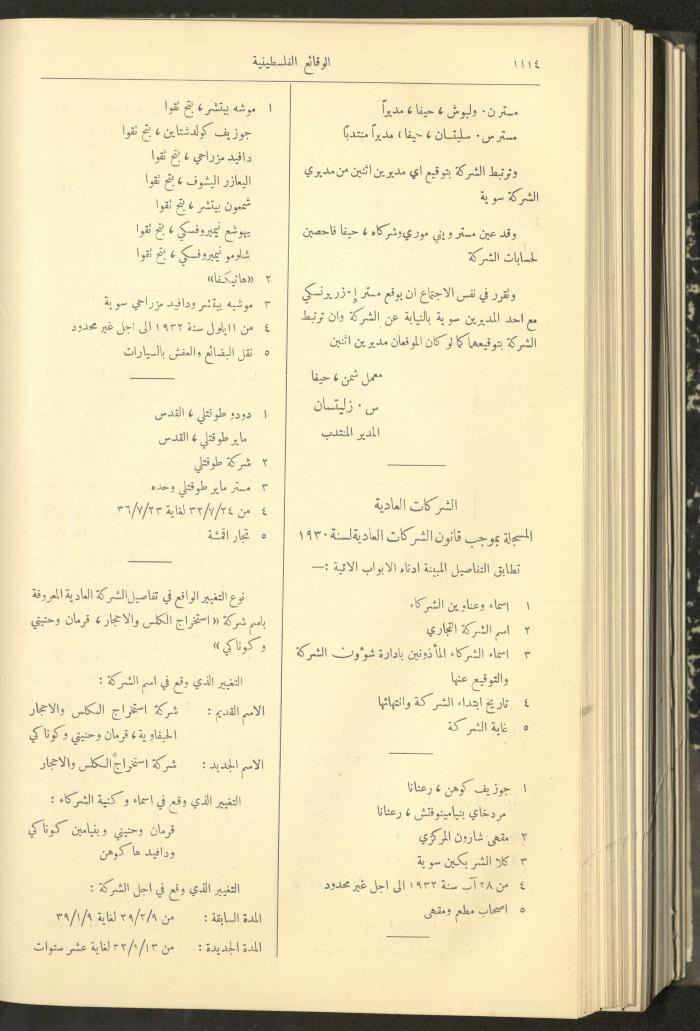 ١١١٤
الوقائع الفلسطينية
مستر ن٠ ولبوش ، حيفا ، مديراً
مستر س٠ سليتسان ، حيفا ، مديراً منتدبًا
وترتبط الشركة بتوقيع اي مديرين اثنين من مديري
الشركة سوية
وقد عين مستر ويني موري وشركاه ، حيفا فاحصين
لحسابات الشركة
وتقرر في نفس الاجتماع ان يوقع مستر إ٠ زريونسكي
مع احد المديرين سوية بالنيابة عن الشركة وان ترتبط
الشركة بتوقيعهما كما لو كان الموقعان مديرين اثنين
معمل شمن ، حيفا
س ٠ زليتسان
المدير المنتدب
الشركات العادية
المسجلة بموجب قانون الشركات العادية لسنة ١٩٣٠
تطابق التفاصيل المبينة ادناه الابواب الاتية :—
١ اسماء وعناوين الشركاء
٢ اسم الشركة التجاري
٣ اسماء الشركاء المأذونين بادارة شؤون الشركة
والتوقيع عنها
٤ تاريخ ابتداء الشركة وانتهائها
٥ غاية الشركة
١ جوزيف كوهن ، رعنانا
مردخاي بنيامينوفتش ، رعنانا
٢ مقهى شارون المركزي
٣ كلا الشريكين سوية
٤ من ٢٨ آب سنة ١٩٣٢ الى اجل غير محدود
٥ اصحاب مطعم ومقهى
١ موشه بيتشر ، بتح تقوا
جوزيف كولدشتاين ، بتح تقوا
دافيد مزراحي ، بتح تقوا
اليعازر اليشوف ، بتح تقوا
شمعون بيتشر ، بتح تقوا
يهوشع نيميروفسكي ، بتح تقوا
شلومو نيميروفسكي ، بتح تقوا
٢ «هاتيكفا»
٣ موشيه بيتشر ودافيد مزراحي سوية
٤ من ١ ايلول سنة ١٩٣٢ الى اجل غير محدود
٥ نقل البضائع والعفش بالسيارات
١ دودو طوقتلي ، القدس
ماير طوقتلي ، القدس
٢ شركة طوقتلي
٣ مستر ماير طوقتلي وحده
٤ من ٣٢/٧/٢٤ لغاية ٣٦/٧/٢٣
٥ تجار اقمشة
نوع التغيير الواقع في تفاصيل الشركة العادية المعروفة
باسم شركة « استخراج الكلس والاحجار ، قرمان وحنيني
وكوناكي »
التغيير الذي وقع في اسم الشركة :
الاسم القديم : شركة استخراج الكلس والاحجار
الحيفاوية ، قرمان وحنيني وكوناكي
الاسم الجديد : شركة استخراج الكلس والاحجار
التغيير الذي وقع في اسماء وكنية الشركاء :
قرمان وحنيني وبنيامين كوناكي
ودافيد هاكوهن
التغيير الذي وقع في اجل الشركة :
المدة السابقة : من ٢٩/٢/٩ لغاية ٣٩/١/٩
المدة الجديدة : من ٣٢/٩/١٣ لغاية عشر سنوات